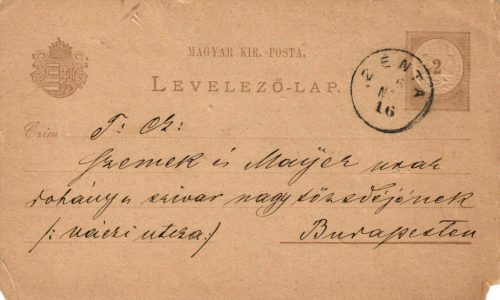 MAGYAR KIR. POSTA.
LEVELEZŐ-LAP.
2
ZENTA
16
Czim
T: Cz:
Szemek és Mayer urak
dohány s szivar nagy tőzsdéjének
/: váczi utcza :/
Budapesten